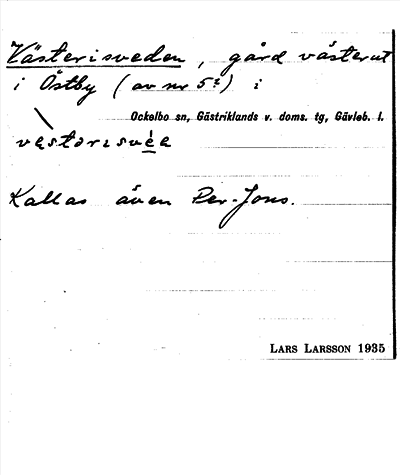 Västerisveden, gård västerut
i Östby (av nr 5²) i
Ockelbo sn, Gästriklands v. doms. tg, Gävleb. l.
vestərisvèe
Kallas även Per-Jons.
LARS LARSSON 1935